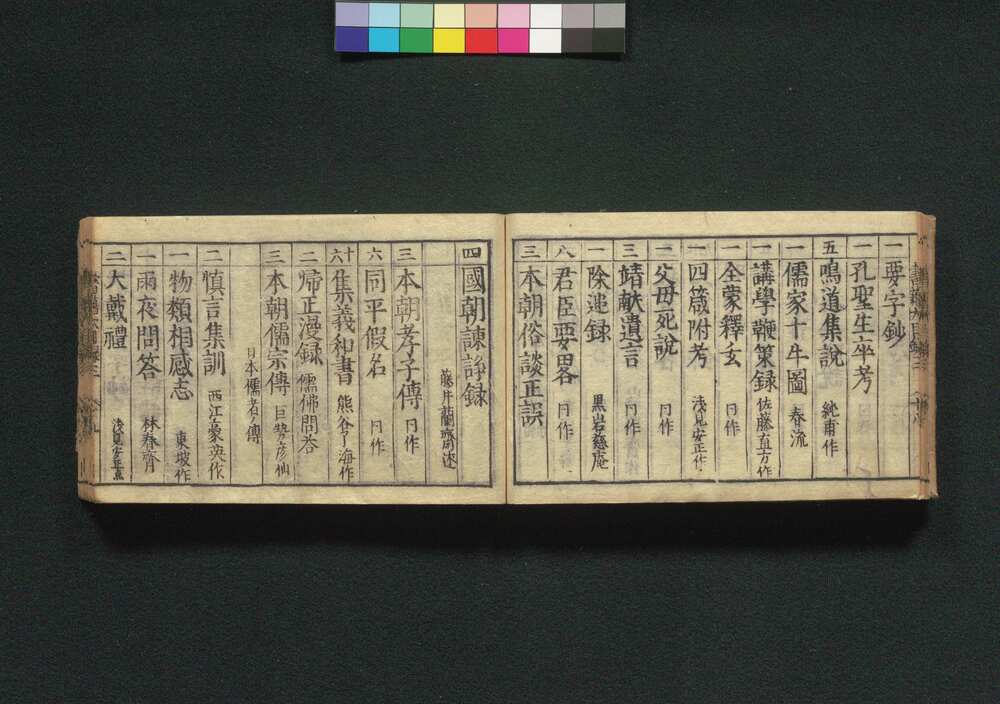 一 要字鈔
一 孔聖生卒考
五 鳴道集説 純甫作
一 儒家十牛圖 春流
一 講學鞭策録 佐藤直方作
一 全蒙釋玄 冂作
一 四箴附考 浅見安正作
一 父母死説 冂作
三 靖献遺言 冂作
一 除邪録 黒岩慈庵
八 君臣要畧 冂作
三 本朝俗談正誤
四 國朝諫諍録
藤井蘭齋述
三 本朝孝子傳 冂作
六 同平假名 冂作
十六 集義和書 熊谷了海作
二 帰正漫録 儒佛問答
三 本朝儒宗傳 巨勢彦仙
日本儒者傳
二 慎言集訓 西江豪英作
一 物類相感志 東坡作
一 雨夜問答 林春齊
二 大戴禮